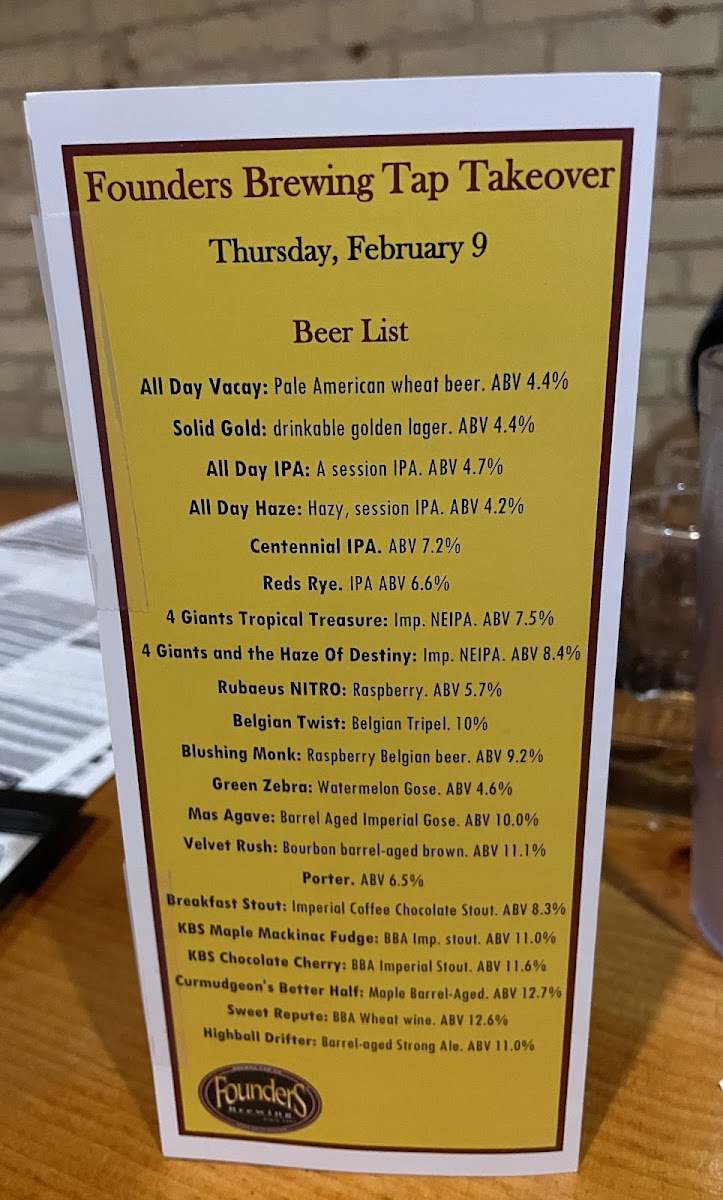 Founders Brewing Tap Takeover
Thursday, February 9
Beer List
All Day Vacay: Pale American wheat beer. ABV 4.4%
Solid Gold: drinkable golden lager. ABV 4.4%
All Day IPA: A session IPA. ABV 4.7%
All Day Haze: Hazy, session IPA. ABV 4.2%
Centennial IPA. ABV 7.2%
Reds Rye. IPA ABV 6.6%
4 Giants Tropical Treasure: Imp. NEIPA. ABV 7.5%
4 Giants and the Haze Of Destiny: Imp. NEIPA. ABV 8.4%
Rubaeus NITRO: Raspberry. ABV 5.7%
Belgian Twist: Belgian Tripel. 10%
Blushing Monk: Raspberry Belgian beer. ABV 9.2%
Green Zebra: Watermelon Gose. ABV 4.6%
Mas Agave: Barrel Aged Imperial Gose. ABV 10.0%
Velvet Rush: Bourbon barrel-aged brown. ABV 11.1%
Porter. ABV 6.5%
Breakfast Stout: Imperial Coffee Chocolate Stout. ABV 8.3%
KBS Maple Mackinac Fudge: BBA Imp. stout. ABV 11.0%
KBS Chocolate Cherry: BBA Imperial Stout. ABV 11.6%
Curmudgeon's Better Half: Maple Barrel-Aged. ABV 12.7%
Sweet Repute: BBA Wheat wine. ABV 12.6%
Highball Drifter: Barrel-aged Strong Ale. ABV 11.0%
Founders
Brewing